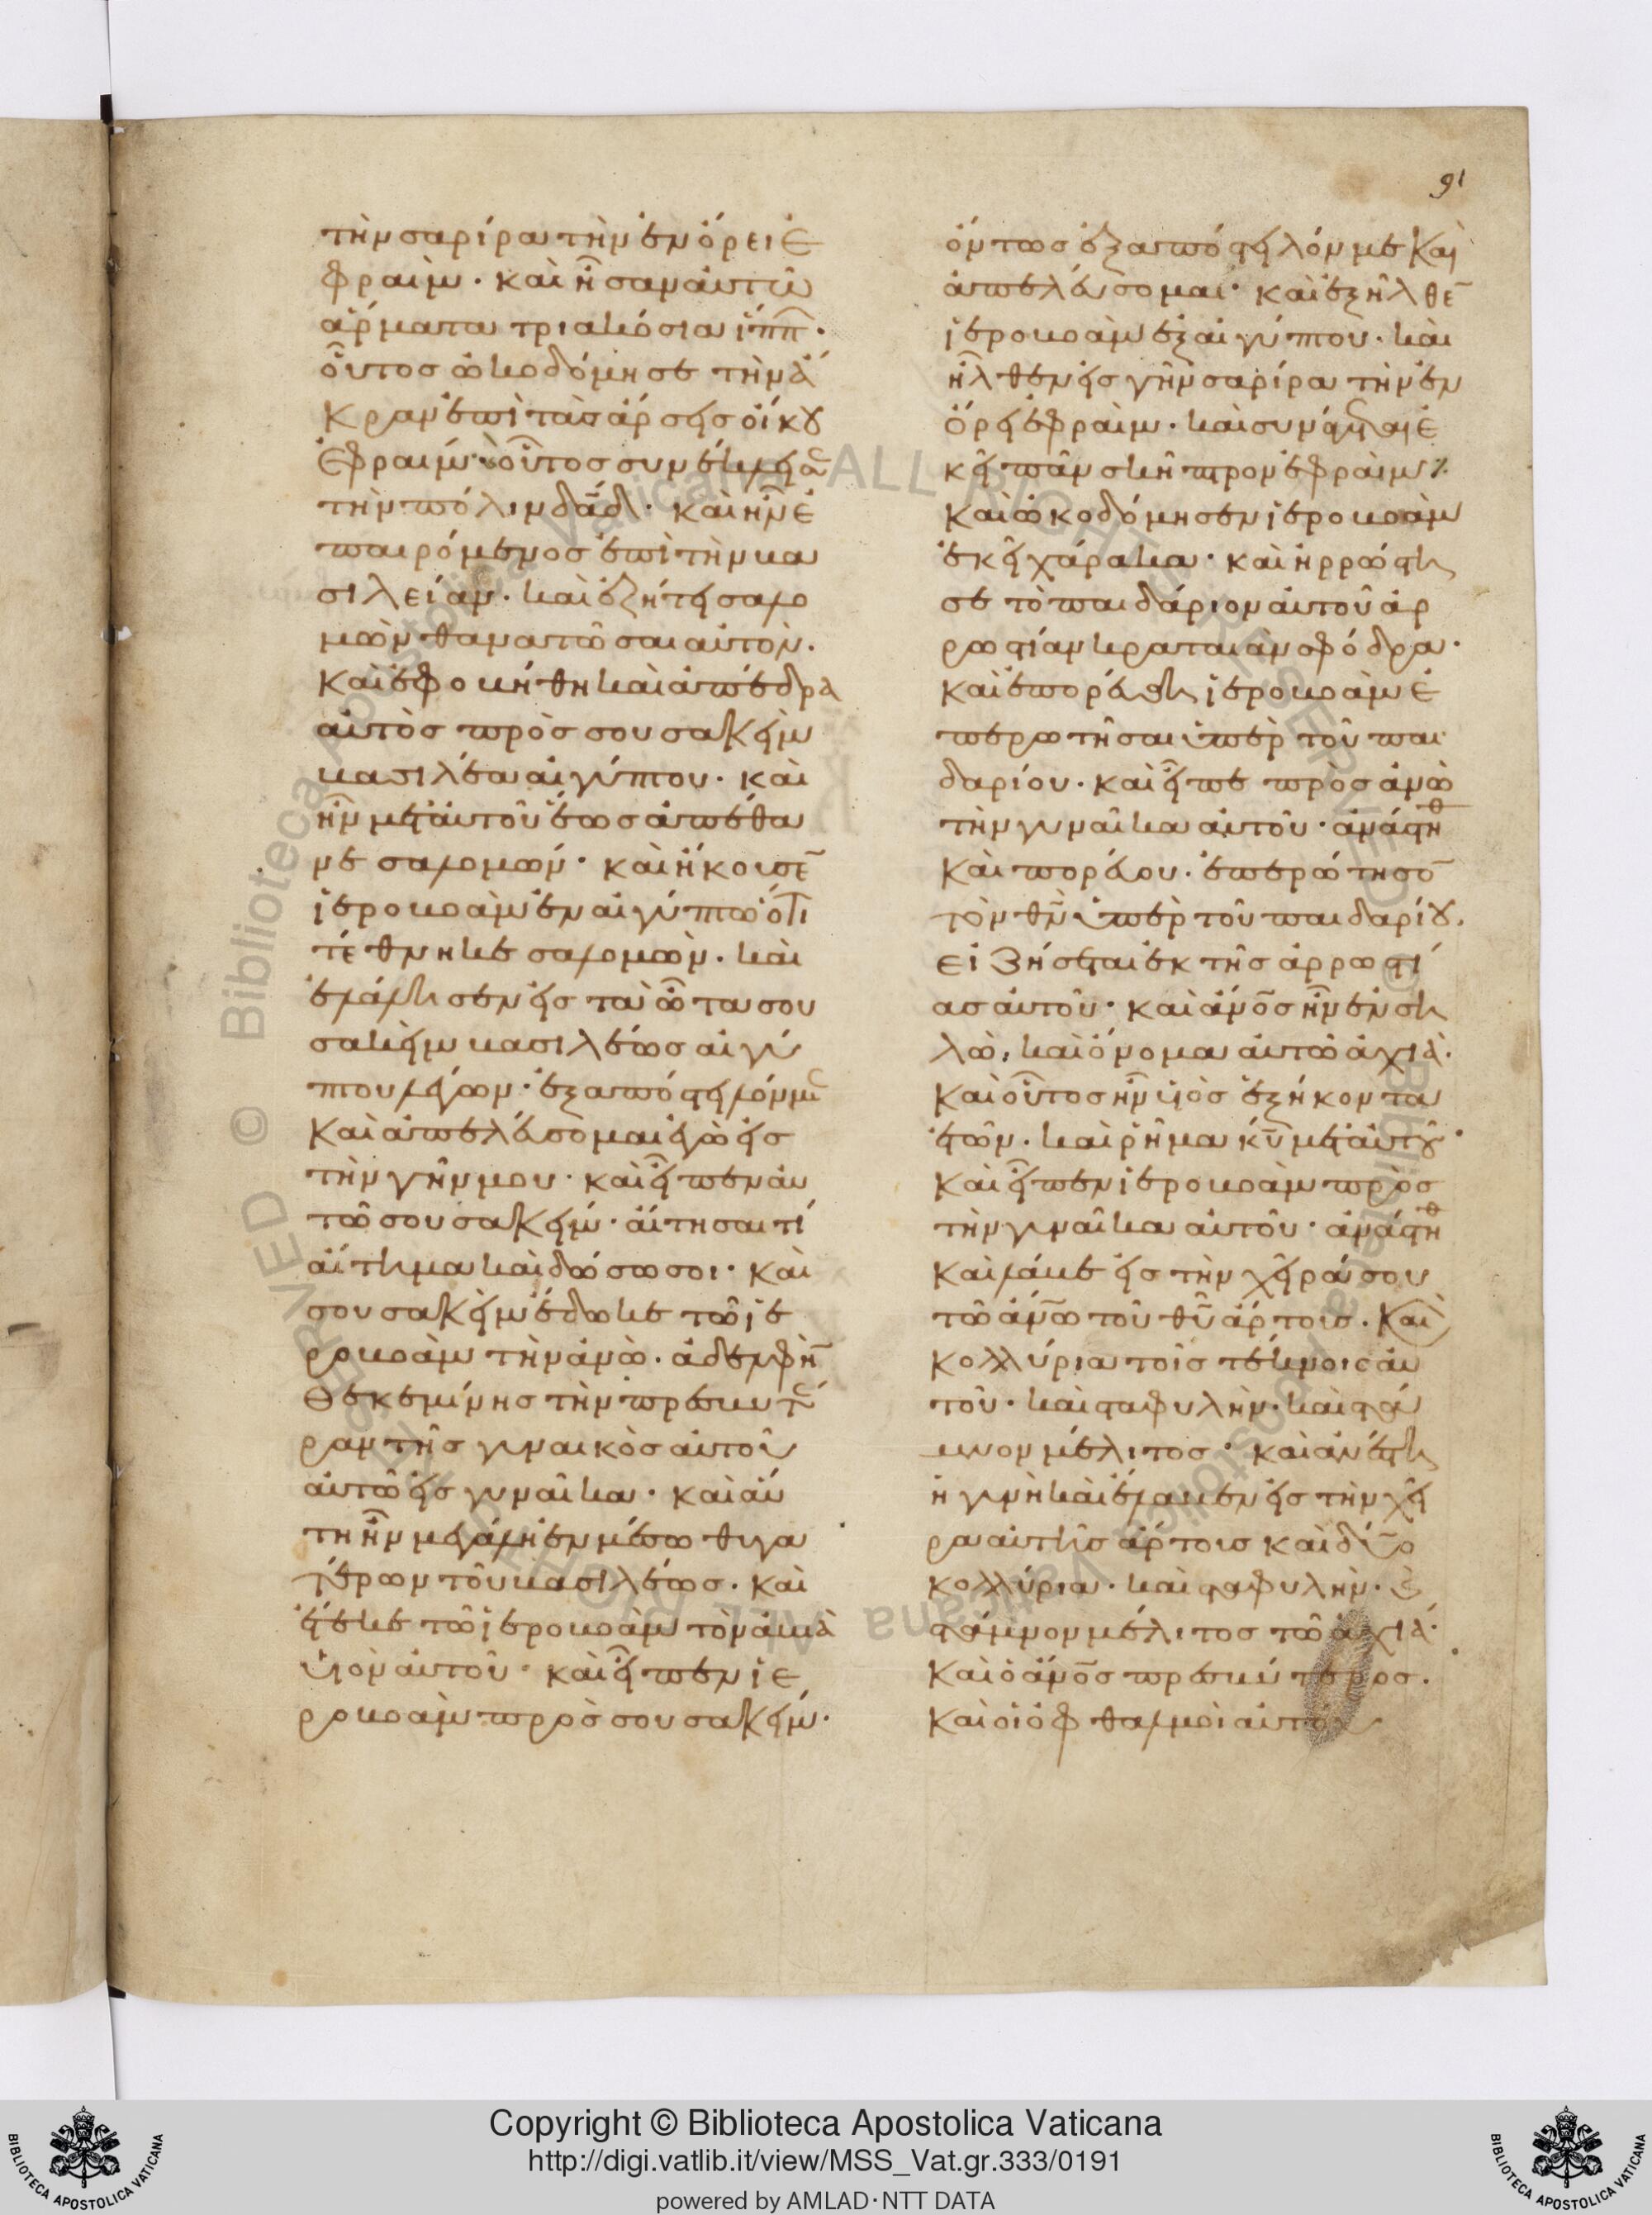 91
τὴν σαρίρα τὴν ἐν ὄρει ἐ
φραὶμ · καὶ ἦσαν αὐτῶ
ἅρματα τριακόσια ἵππ̅ ·
οὗτος ὠκοδόμησε τὴν ἄ
κραν ἐπὶ τὰς ἄρσεις οἴκου
ἐφραίμ · οὗτος συνέκλεισε
τὴν πόλιν δα̅δ̅ · καὶ ἦν ἐ
παιρόμενος ἐπὶ τὴν βα
σιλείαν · καὶ ἐζήτει σαλο
μὼν θανατῶσαι αὐτὸν ·
καὶ ἐφοβήθη καὶ ἀπέδρα
αὐτὸς πρὸς σουσακεὶμ
βασιλέα αἰγύπτου · καὶ
ἦν μετ' αὐτοῦ ἕως ἀπέθα
νε σαλομών · καὶ ἤκουσε̅
ἱεροβοὰμ ἐν αἰγύπτω ὅτι
τέθνηκε σαλομὼν · καὶ
ἐλάλησεν εἰς τὰ ὦτα σου
σακεὶμ βασιλέως αἰγύ
πτου λέγων · ἐξαπόστειλόν με
καὶ ἀπελεύσομαι ἐγὼ εἰς
τὴν γῆν μου · καὶ εἶπεν αὐ
τῶ σουσακείμ · αἴτησαι τί
αἴτημα καὶ δώσω σοι · καὶ
σουσακεὶμ ἔδωκε τῶ ἱε
ροβοὰμ τὴν ἀνὼ · ἀδελφὴ̅
θεκεμίνης τὴν πρεσβυτέ
ραν τῆς γυναικὸς αὐτοῦ
αὐτῶ εἰς γυναῖκα · καὶ αὕ
τη ἦν μεγάλη ἐν μέσω θυγα
τέρων τοῦ βασιλέως · καὶ
ἔτεκε τῶ ἱεροβοὰμ τὸν ἀβιὰ
υἱὸν αὐτοῦ · καὶ εἶπεν ἱε
ροβοὰμ πρὸς σουσακείμ ·
ὄντως ἐξαπόστειλόν με καὶ
ἀπελεύσομαι · καὶ ἐξῆλθε̅
ἱεροβοὰμ ἐξ αἰγύπτου · καὶ
ἦλθεν εἰς γῆν σαρίρα τὴν ἐν
ὄρει ἐφραὶμ · καὶ συνάγεται ἐ
κεῖ πᾶν σκῆπτρον ἐφραὶμ ·
καὶ ὠκοδόμησεν ἱεροβοὰμ
ἐκεῖ χάρακα · καὶ ἠρρώστη
σε τὸ παιδάριον αὐτοῦ ἀρ
ρωστίαν κραταιὰν σφόδρα ·
καὶ ἐπορεύθη ἱεροβοὰμ ἐ
περωτῆσαι ὑπὲρ τοῦ παι
δαρίου · καὶ εἶπε πρὸς ἀνὼ
τὴν γυναῖκα αὐτοῦ · ἀνάστηθ
καὶ πορεύου · ἐπερώτησο̅
τὸν θ̅ν̅ ὑπὲρ τοῦ παιδαρίου ·
εἰ ζήσεται ἐκ τῆς ἀρρωστί
ας αὐτοῦ · καὶ ἄν̅ο̅ς ἦν ἐν ση
λὼ, καὶ ὄνομα αὐτῶ ἀχιὰ ·
καὶ οὗτος ἦν υἱὸς ἑξήκοντα
ἐτῶν · καὶ ῥῆμα κ̅υ̅ μετ' αὐτοῦ ·
καὶ εἶπεν ἱεροβοὰμ πρὸς
τὴν γυναῖκα αὐτοῦ · ἀνάστηθ
καὶ λάβε εἰς τὴν χεῖρά σου
τῶ ἀν̅ω̅ τοῦ θ̅υ̅ ἄρτοις · καὶ
κολλύρια τοῖς τέκνοις αὐ
τοῦ · καὶ σταφυλὴν · καὶ στά
μνον μέλιτος · καὶ ἀνέστη
ἡ γυνὴ καὶ ἔλαβεν εἰς τὴν χεῖ
ρα αὐτῆς ἄρτοις καὶ δύο
κολλύρια · καὶ σταφυλὴν · καὶ
στάμνον μέλιτος τῶ ἀχιά ·
καὶ ὁ ἄν̅ο̅ς πρεσβύτερος ·
καὶ οἱ ὀφθαλμοὶ αὐτοῦ
Copyright © Biblioteca Apostolica Vaticana
http://digi.vatlib.it/view/MSS_Vat.gr.333/0191
powered by AMLAD·NTT DATA
BIBLIOTECA APOSTOLICA VATICANA
BIBLIOTECA APOSTOLICA VATICANA